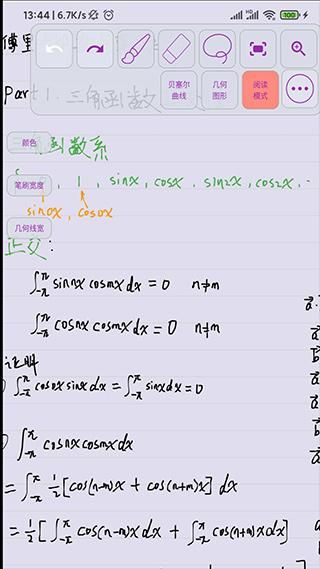 13:44 | 6.7K/s
100
傅里
Part 1. 三角函数
贝塞尔曲线
几何图形
阅读模式
颜色
函数系
笔刷宽度
, 1, sinx, cosx, sin2x, cos2x, ..
sin0x, cos0x
几何线宽
正交:
∫_{-π}^{π} sin nx cos mx dx = 0 n≠m
∫_{-π}^{π} cos nx cos mx dx = 0 n≠m
证明
∫_{-π}^{π} cos0x sinx dx = ∫_{-π}^{π} sinx dx = 0
∫_{-π}^{π} cos nx cos mx dx
= ∫_{-π}^{π} 1/2 [cos(n-m)x + cos(n+m)x] dx
= 1/2 [∫_{-π}^{π} cos(n-m)x dx + ∫_{-π}^{π} cos(n+m)x dx]